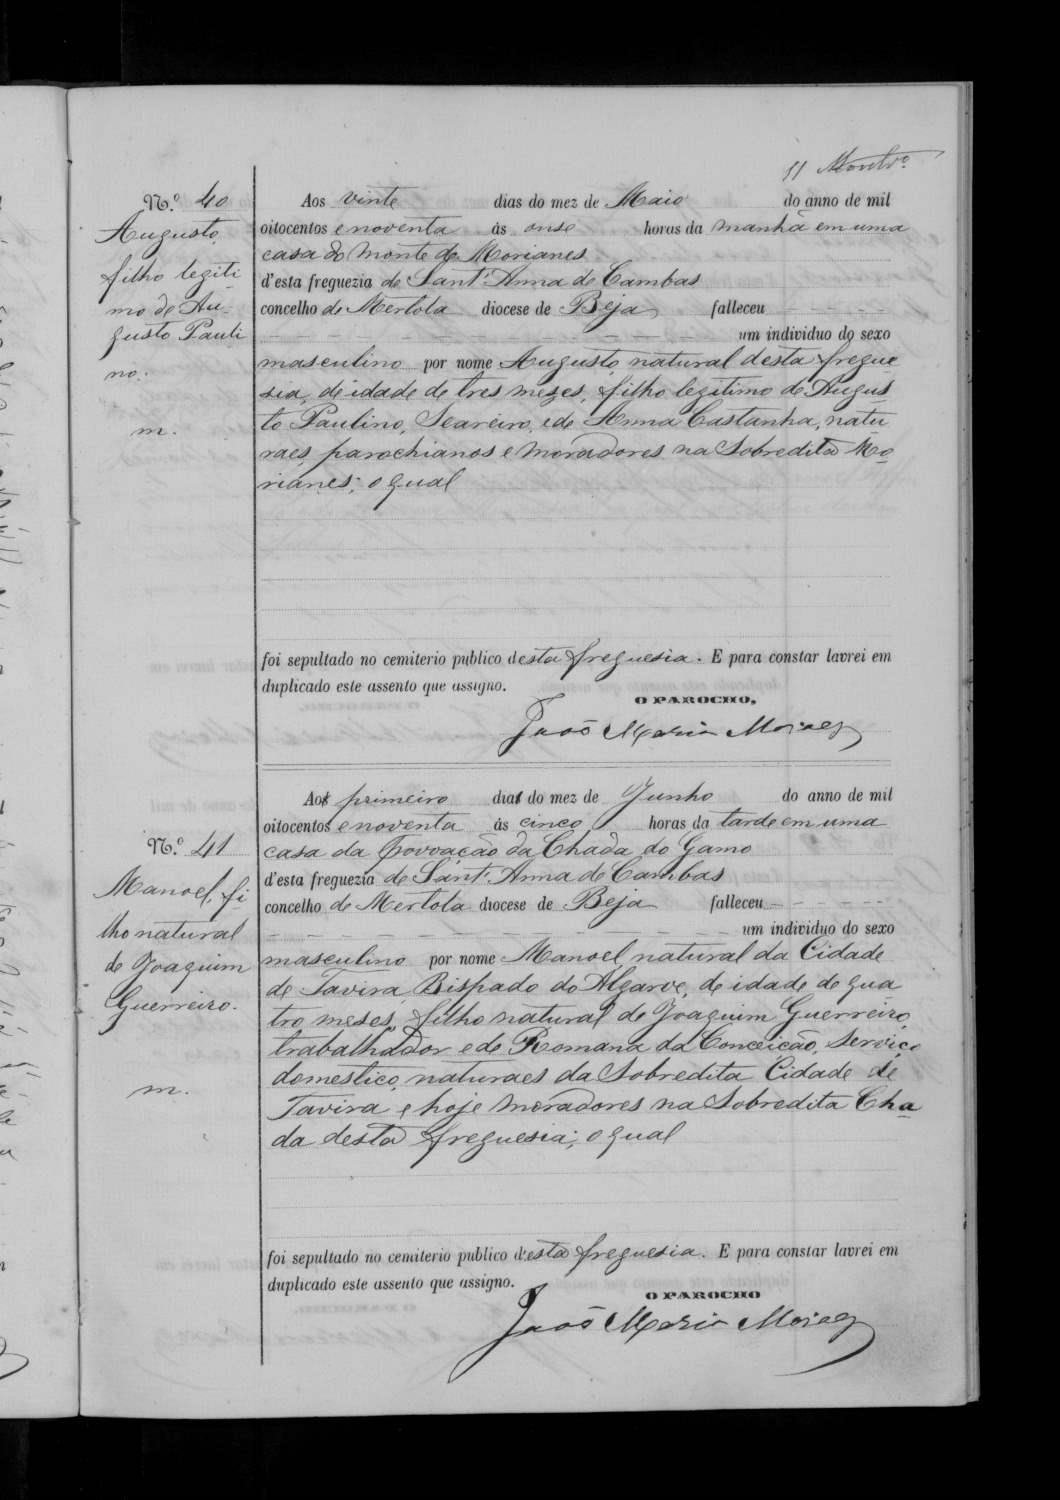 11
N.º 40
Augusto,
filho legiti-
mo de Au-
gusto Pauli
no.
m.
Aos vinte dias do mez de Maio do anno de mil
oitocentos e noventa ás onse horas da manhã em uma
casa do monte de Morianes
d'esta freguezia de Sant'Anna de Cambas
concelho de Mertola diocese de Beja falleceu
um individuo do sexo
masculino por nome Augusto, natural desta fregue
sia, de idade de tres mezes, filho legitimo de Augus-
to Paulino, Seareiro, e de Anna Castanha, natu-
raes, parochianos e moradores na Sobredita Mo-
rianes; o qual
foi sepultado no cemiterio publico desta freguesia. E para constar lavrei em
duplicado este assento que assigno.
O PAROCHO,
João Maria Moraes
N.º 41
Manoel, fi-
lho natural
de Joaquim
Guerreiro.
m.
Ao primeiro dia do mez de Junho do anno de mil
oitocentos e noventa ás cinco horas da tarde em uma
casa da Povoação da Chada do Gamo
d'esta freguezia de Sant'Anna de Cambas
concelho de Mertola diocese de Beja falleceu
um individuo do sexo
masculino por nome Manoel, natural da Cidade
de Tavira, Bispado do Algarve, de idade de qua
tro meses, filho natural de Joaquim Guerreiro,
trabalhador e de Romana da Conceição, serviço
domestico, naturaes da Sobredita Cidade de
Tavira e hoje moradores na Sobredita Cha-
da desta freguesia; o qual
foi sepultado no cemiterio publico d'esta freguesia. E para constar lavrei em
duplicado este assento que assigno.
O PAROCHO
João Maria Moraes